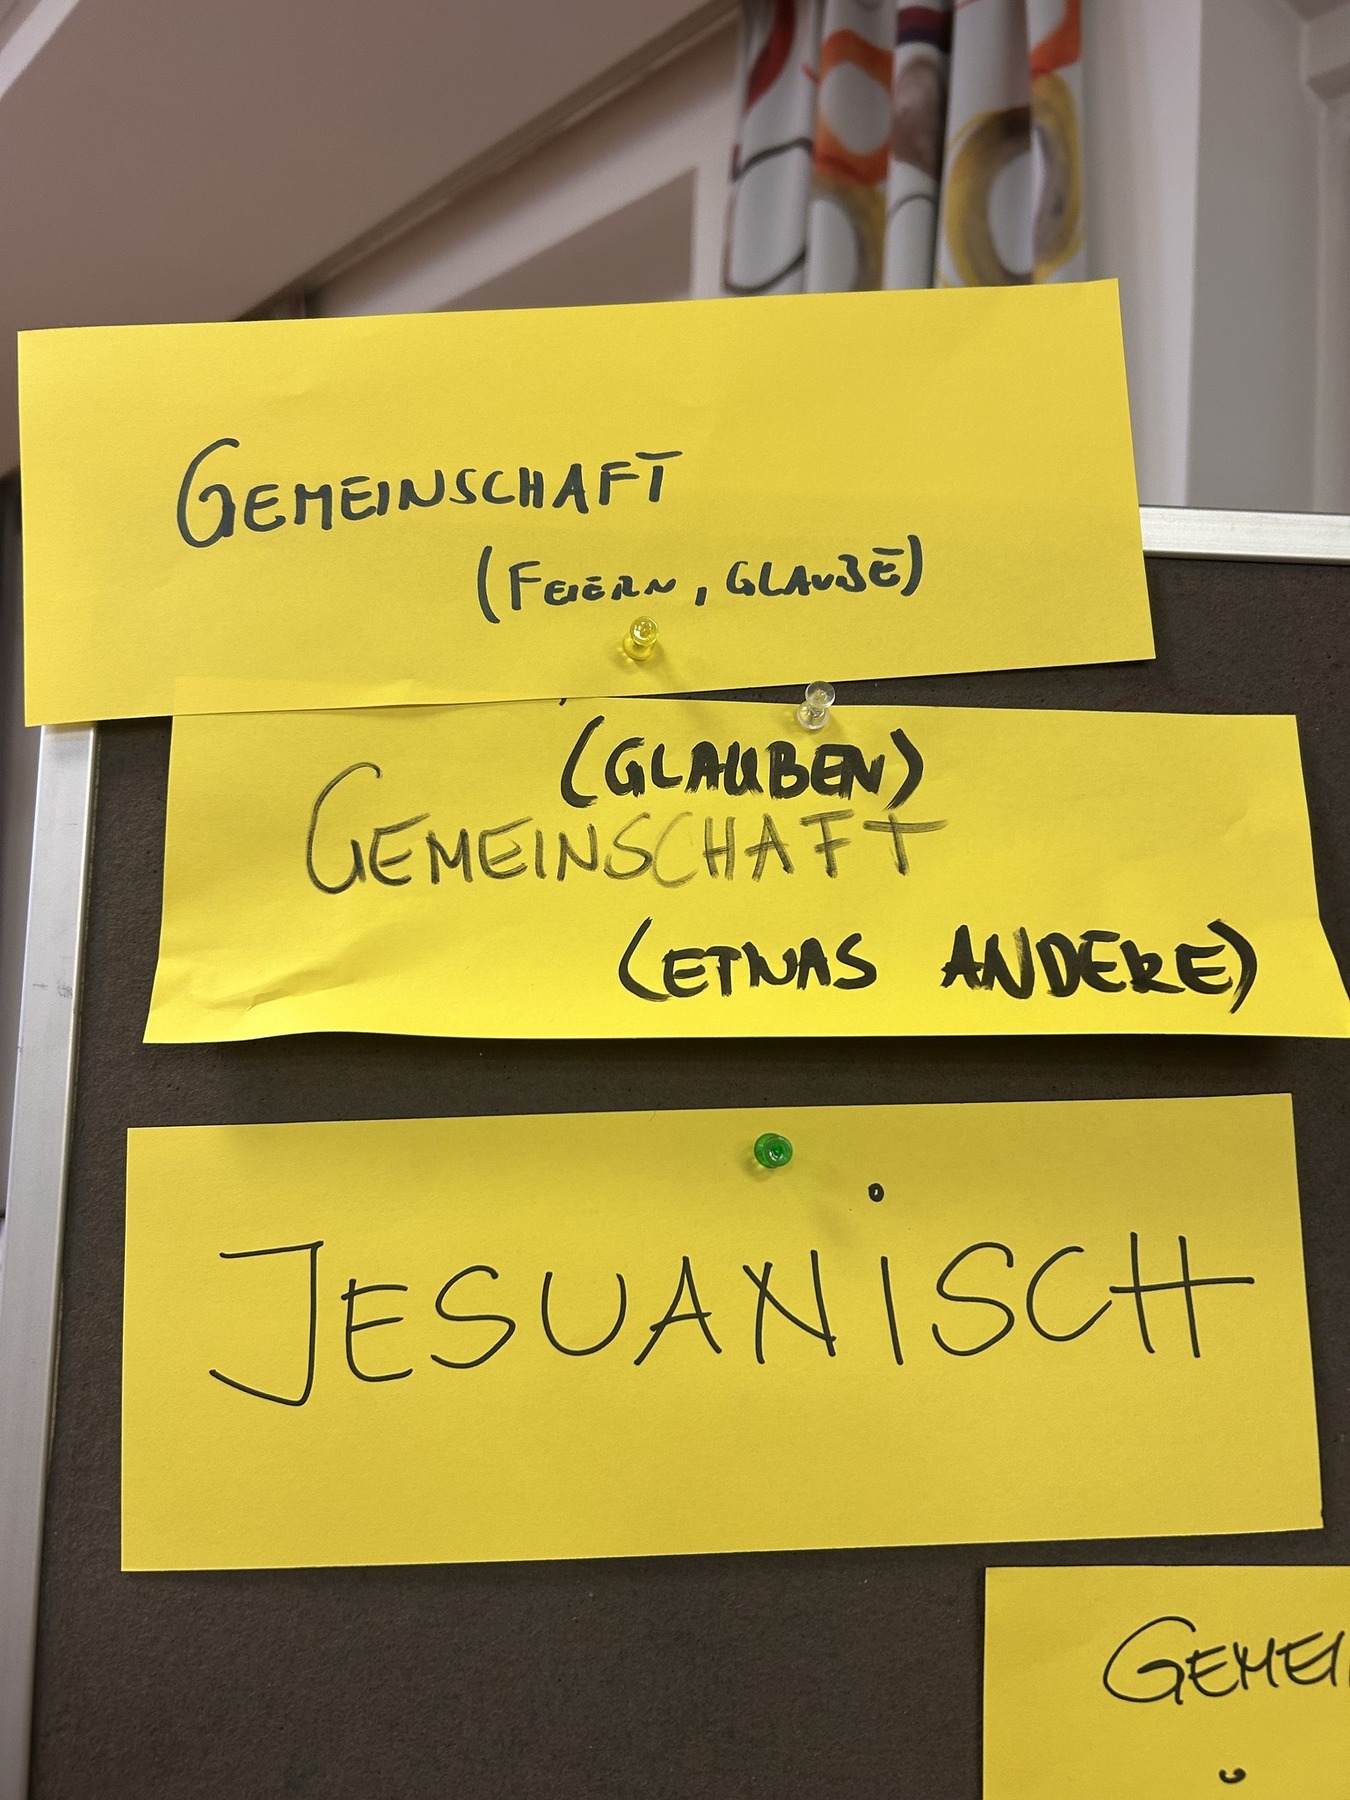 GEMEINSCHAFT
(FEIERN, GLAUBE)
(GLAUBEN)
GEMEINSCHAFT
(ETWAS ANDERE)
JESUANiSCH
GEMEI